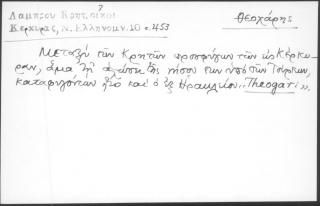 Λάμπρου Κρητ. οικοι
Κερκύρας, Ν. Ελληνομν. 10 σ. 453
?
Θεοχάρης
Μεταξύ των Κρητών προσφύγων των εις Κέρκυ-
ραν, άμα τη αλώσει της νήσου των υπό των Τούρκων,
καταφυγόντων ήτο και ο εξ Ηρακλείου "Theogari".